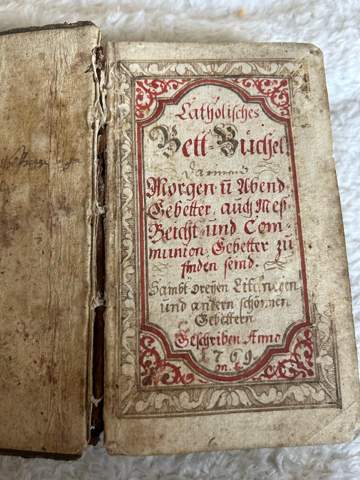 Catholisches
Bett-Büchel
Darinnen
Morgen uñ Abend
Gebetter, auch Meß
Beicht und Com-
munion, Gebetter zu
finden seind.
Sambt dreyen Litaneyen
und andern schönnen
Gebettern
Geschriben Anno
1769